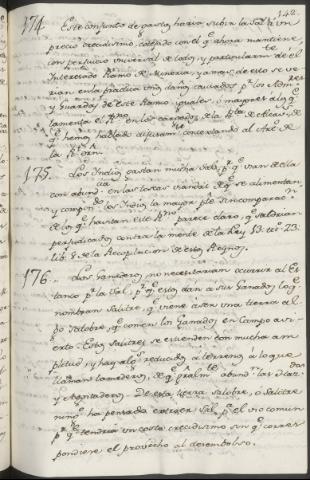 142.
174. Este conjunto de gastos haria subir la Sal à un
precio crecidisimo, cotejado con el q.e ahora mantiene
con perjuicio universal de todos, y particularm.te de el
Interesado Ramo de Mineria, y a mas de esto se ve
rian en la practica unos daños, causados p.r los
y Guardas de este Ramo iguales, ò mayores à los q.e
lamenta el en los
hemos hablado contextando al Art. de
la
175. Los Indios gastan mucha Sal, p.r q.e usan de ella
con abund.a en las tortas viandas de q.e se alimentan
y comp.do los Indios la mayor p.te sin comparac.n
de los q.e havitan este parece claro, q.e saldrian
perjudicados contra la mente de la Ley 13. tit.o 23.
lib. 8. de la Recopilacion de estos Reynos.
176. Los Ganaderos no necesitarian ocurrir al Es
tanco p.r la Sal, p.r q.e estos dan a sus Ganados lo q.e
nombran Salitre, q.e viene a ser una tierra al
go Salobre, q.e comen los Ganados en Campo avi
erto. Estos Salitres se extienden con mucha am
plitud, y hay algo reducido a terreno, a lo que
llaman lamederos, de q.e g.ralm.te abund.n las
y Agostaderos. De esta tierra Salobre, o Salitre
ning.o ha pensado extraer Sal p.a el uso comun
p.r q.e tendria un costo crecidisimo sin q.e corres
pondiere el provecho al desembolso.